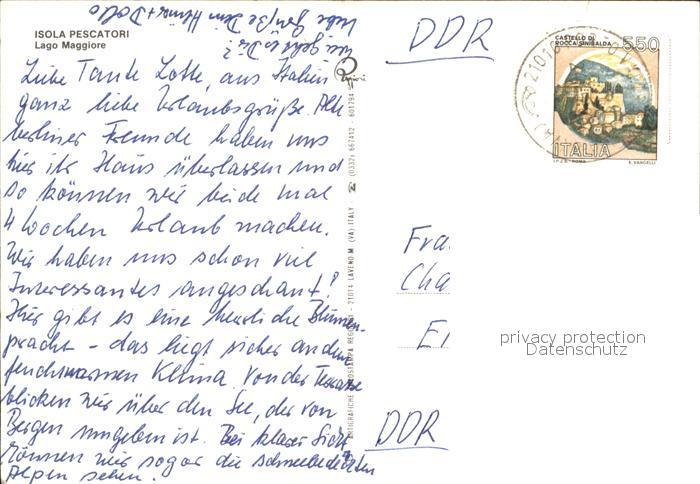 ISOLA PESCATORI
Lago Maggiore
Liebe Tante Lotte, aus Italien
ganz liebe Urlaubsgrüße. Alte
berliner Freunde haben uns
hier ihr Haus überlassen und
so können wir beide mal
4 Wochen Urlaub machen.
Wir haben uns schon viel
Interessantes angeschaut!
Hier gibt es eine herrliche Blumen-
pracht - das liegt sicher an dem
feuchtwarmen Klima. Von der Terrasse
blicken wir über den See, der von
Bergen umgeben ist. Bei klarer Sicht
können wir sogar die schneebedeckten
Alpen sehen.
Wie geht es Dir?
Liebe Grüße Dein +
DDR
CASTELLO DI
ROCCA SINIBALDA 550
ITALIA
I.P.Z.S. - ROMA E. VANGELLI
21010
Fra
Cha
E
DDR
21014 LAVENO M. (VA) ITALY (0332) 667412 - 601294
privacy protection
Datenschutz